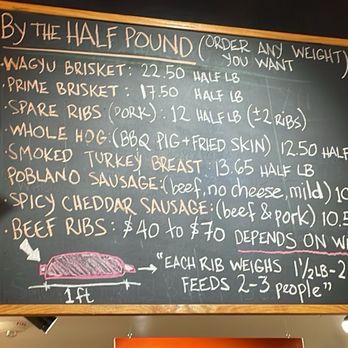 BY THE HALF POUND (ORDER ANY WEIGHT)
YOU WANT
• WAGYU BRISKET: 22.50 HALF LB
• PRIME BRISKET: 17.50 HALF LB
• SPARE RIBS (PORK): 12 HALF LB (±2 RIBS)
• WHOLE HOG: (BBQ PIG+FRIED SKIN) 12.50 HALF
• SMOKED TURKEY BREAST 13.65 HALF LB
POBLANO SAUSAGE: (beef, no cheese, mild) 10
• SPICY CHEDDAR SAUSAGE: (beef & pork) 10.5
• BEEF RIBS: $40 to $70 DEPENDS ON
"EACH RIB WEIGHS 1½LB-2
FEEDS 2-3 people"
1ft